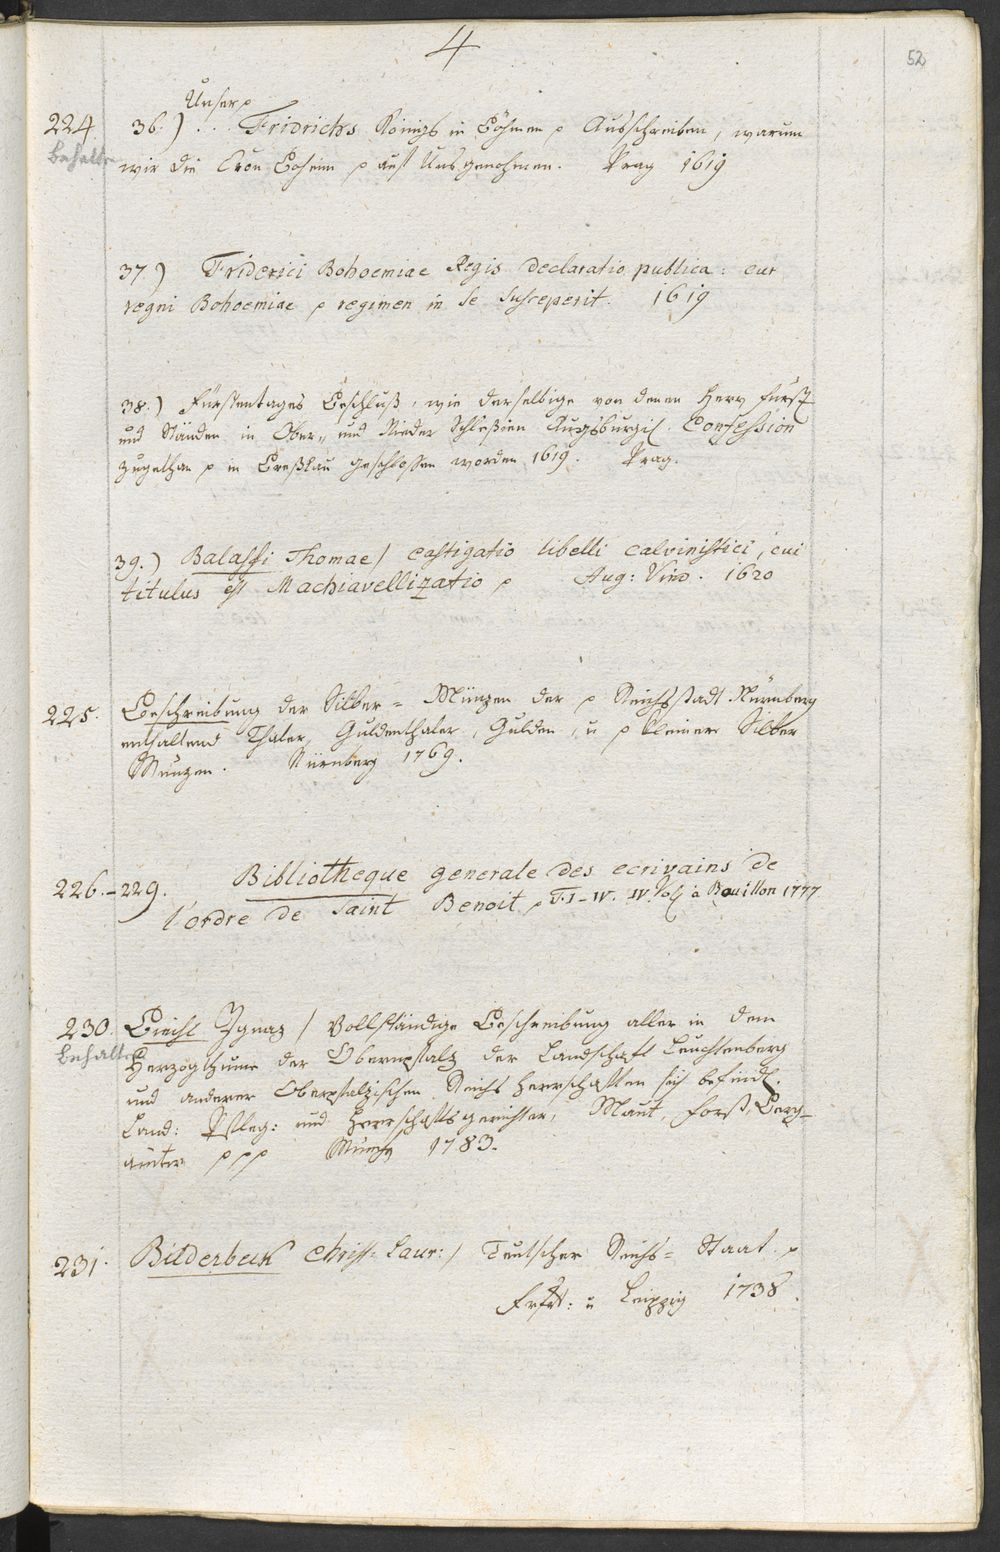 4
52
Unser p
224. 36.) ... Fridrichs Königs in Böhmen p Ausschreiben, warum
behalten
wir die Cron Boheim p auf Uns genohmen. Prag 1619
37.) Friderici Bohoemiae Regis declaratio publica: cur
regni Bohoemiae p regimen in se susceperit. 1619
38.) Fürstentages Beschluß, wie derselbige von denen Herrn Fürst
und Ständen in Ober- und Nieder Schlesien Augsburgis. Confession
zugethan p in Breßlau geschlossen worden 1619. Prag.
39.) Balassi Thomae / castigatio libelli calvinistici, cui
titulus est Machiavellizatio p Aug: Vind. 1620
225. Beschreibung der Silber-Münzen der p Reichsstadt Nürnberg
enthaltend Thaler, Guldenthaler, Gulden, u p kleinere Silber
Münzen. Nürnberg 1769.
226.-229. Bibliotheque generale des ecrivains de
l'ordre de Saint Benoit p T. I-IV. IV Vol. à Bouillon 1777
230. Biechl Ignaz / Vollständige Beschreibung aller in dem
behalten
Herzogthume der Obernpfalz der Landschaft Leuchtenberg
und anderer Oberpfalzischen Reichs Herrschaften sich befindl.
Land: Pfleg: und Herrschaftsgerichter, Maut, Forst, Berg-
ämter p p p Münch 1783.
231. Bilderbeck Christ: Laur: / Teutscher Reichs-Staat p
Frft: u Leipzig 1738.